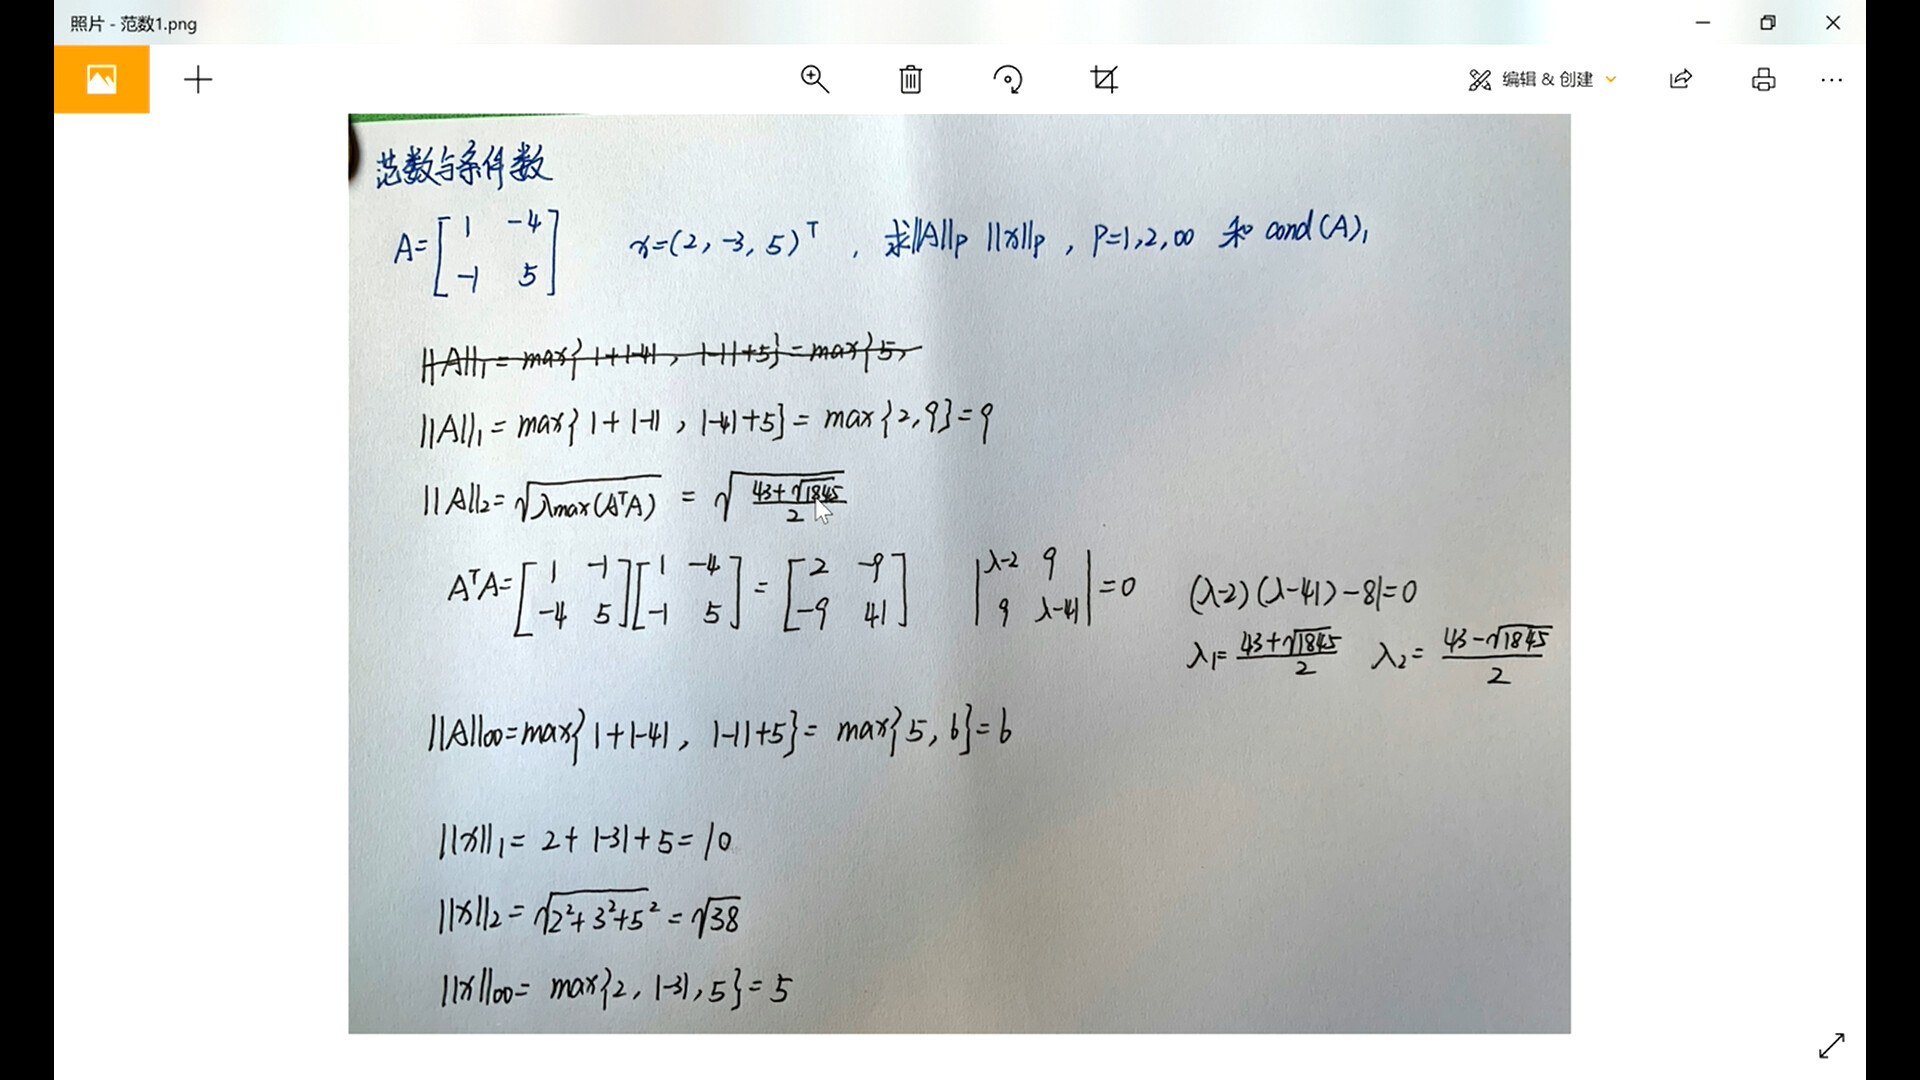 照片 - 范数1.png
编辑 & 创建
范数与条件数
A=[1 -4; -1 5] x=(2, -3, 5)ᵀ , 求||A||p ||x||p , P=1,2,∞ 和 cond(A)₁
||A||₁ = max{ 1+|-4| , |-1|+5} = max{5,
||A||₁ = max{ 1+|-1| , |-4|+5} = max{2,9} = 9
||A||₂ = √(λmax(AᵀA)) = √((43+√1845)/2)
AᵀA = [1 -1; -4 5][1 -4; -1 5] = [2 -9; -9 41] |λ-2 9; 9 λ-41| = 0 (λ-2)(λ-41)-81=0
λ₁= (43+√1845)/2 λ₂= (43-√1845)/2
||A||∞ = max{ 1+|-4| , |-1|+5} = max{5, 6} = 6
||x||₁ = 2+|-3|+5 = 10
||x||₂ = √(2²+3²+5²) = √38
||x||∞ = max{2, |-3|, 5} = 5